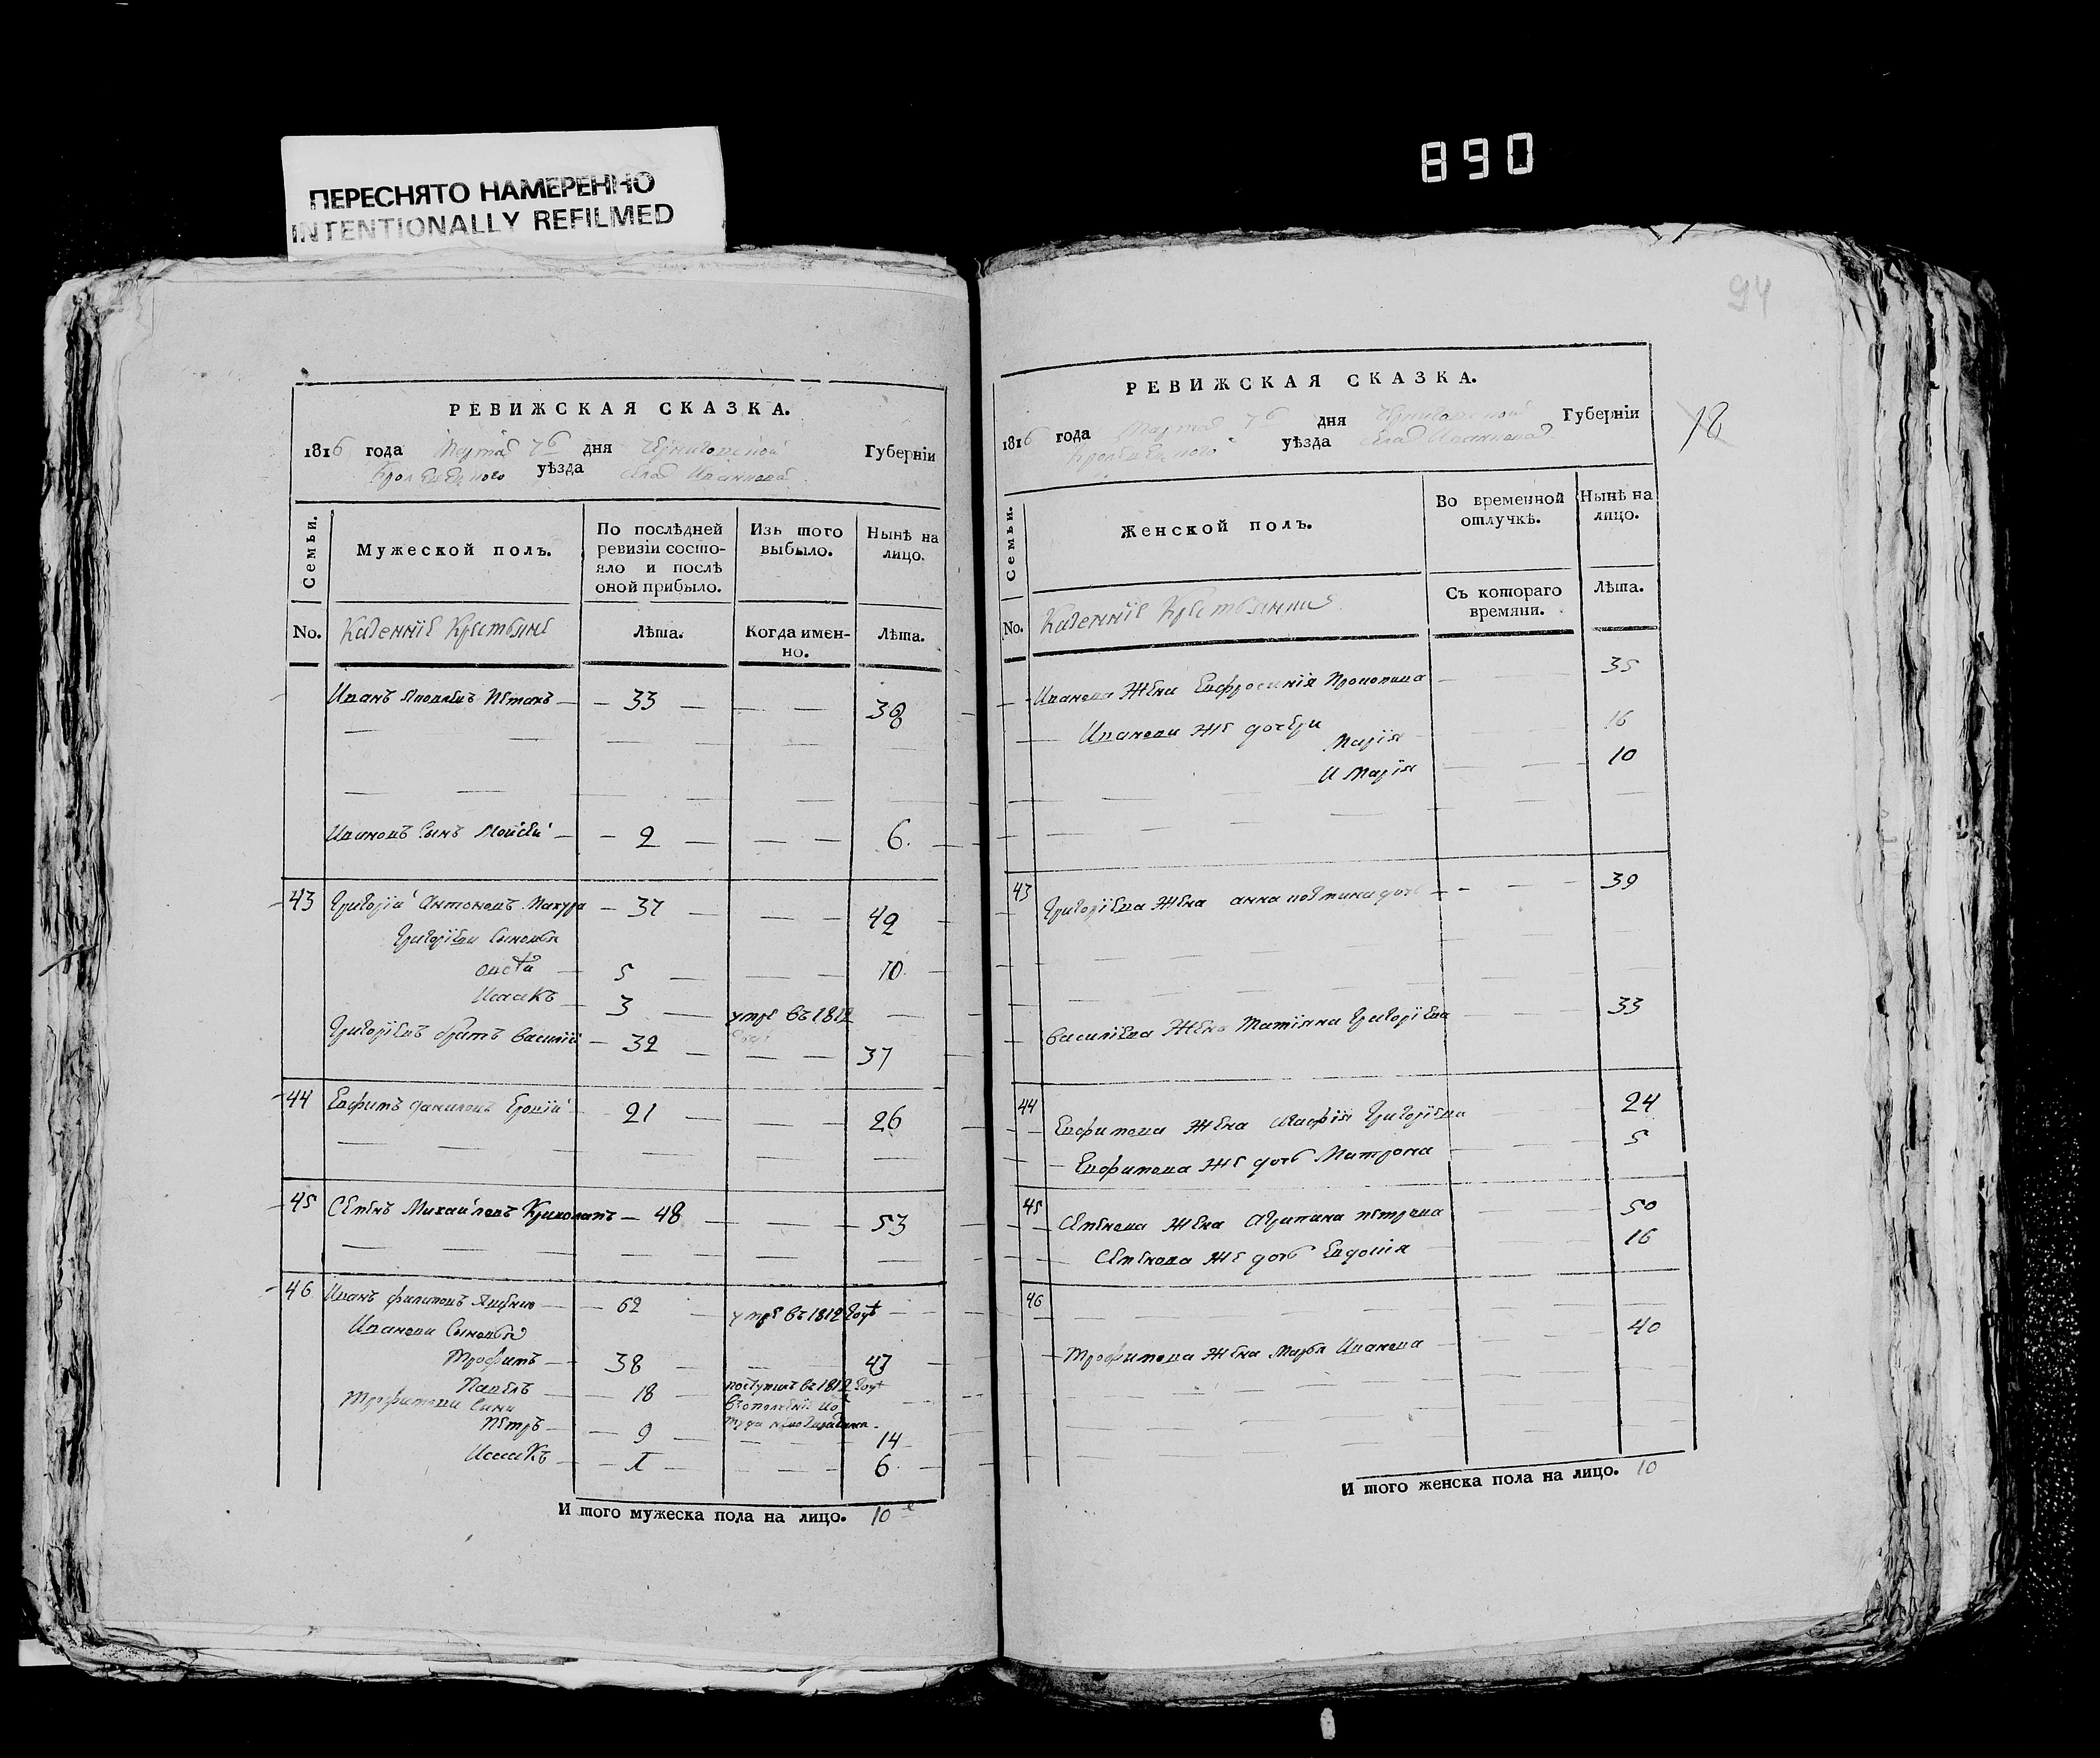 ПЕРЕСНЯТО НАМЕРЕННО
INTENTIONALLY REFILMED
890
94
РЕВИЖСКАЯ СКАЗКА.
1816 года Марта 7го дня Черниговской Губерніи
Кролевецкого уѣзда села Иванкова
Семьи.
Мужеской полъ.
По послѣдней ревизіи состояло и послѣ оной прибыло.
Изъ того выбыло.
Нынѣ на лицо.
No.
Казенніе Крестьяне
Лѣта.
Когда именно.
Лѣта.
Иванъ 33 38
Ивановъ Сынъ Моисей 2 6.
43 Григорій Антоновъ Махура 37 42
Григоріеви Сыновья
5 10.
Исаакъ 3 умре въ 1812
Григоріевъ братъ Василій 32 37
44 Евфимъ Даниловъ 21 26
45 Семенъ Михайловъ Криволапъ 48 53
46 Иванъ Филиповъ 62 умре въ 1812 году
Иванови Сыновья
Трофимъ 38 43
Павелъ 18 поступилъ въ 1812 году
Трофимови Сини
Петръ 9 14
Исаакъ 1 6.
И того мужеска пола на лицо. 10
РЕВИЖСКАЯ СКАЗКА.
1816 года Марта 7го дня Черниговской Губерніи
Кролевецкого уѣзда села Иванкова
18
Семьи.
Женской полъ.
Во временной отлучкѣ.
Нынѣ на лицо.
No.
Казенніе Крестьянки
Съ котораго времяни.
Лѣта.
Иванова Жена Евфросинія Прокопова 35
Иванови же дочери
Марія 16
И Марія 10
43 Григоріева Жена анна дочь 39
Василіева Жена Татіяна Григоріева 33
44 Евфимова Жена Григоріева 24
Евфимова же дочь Матрона 5
45 Семенова Жена Агрипина Петрова 50
Семенова же дочь Евдокія 16
46
Трофимова Жена Марья Иванова 40
И того женска пола на лицо. 10